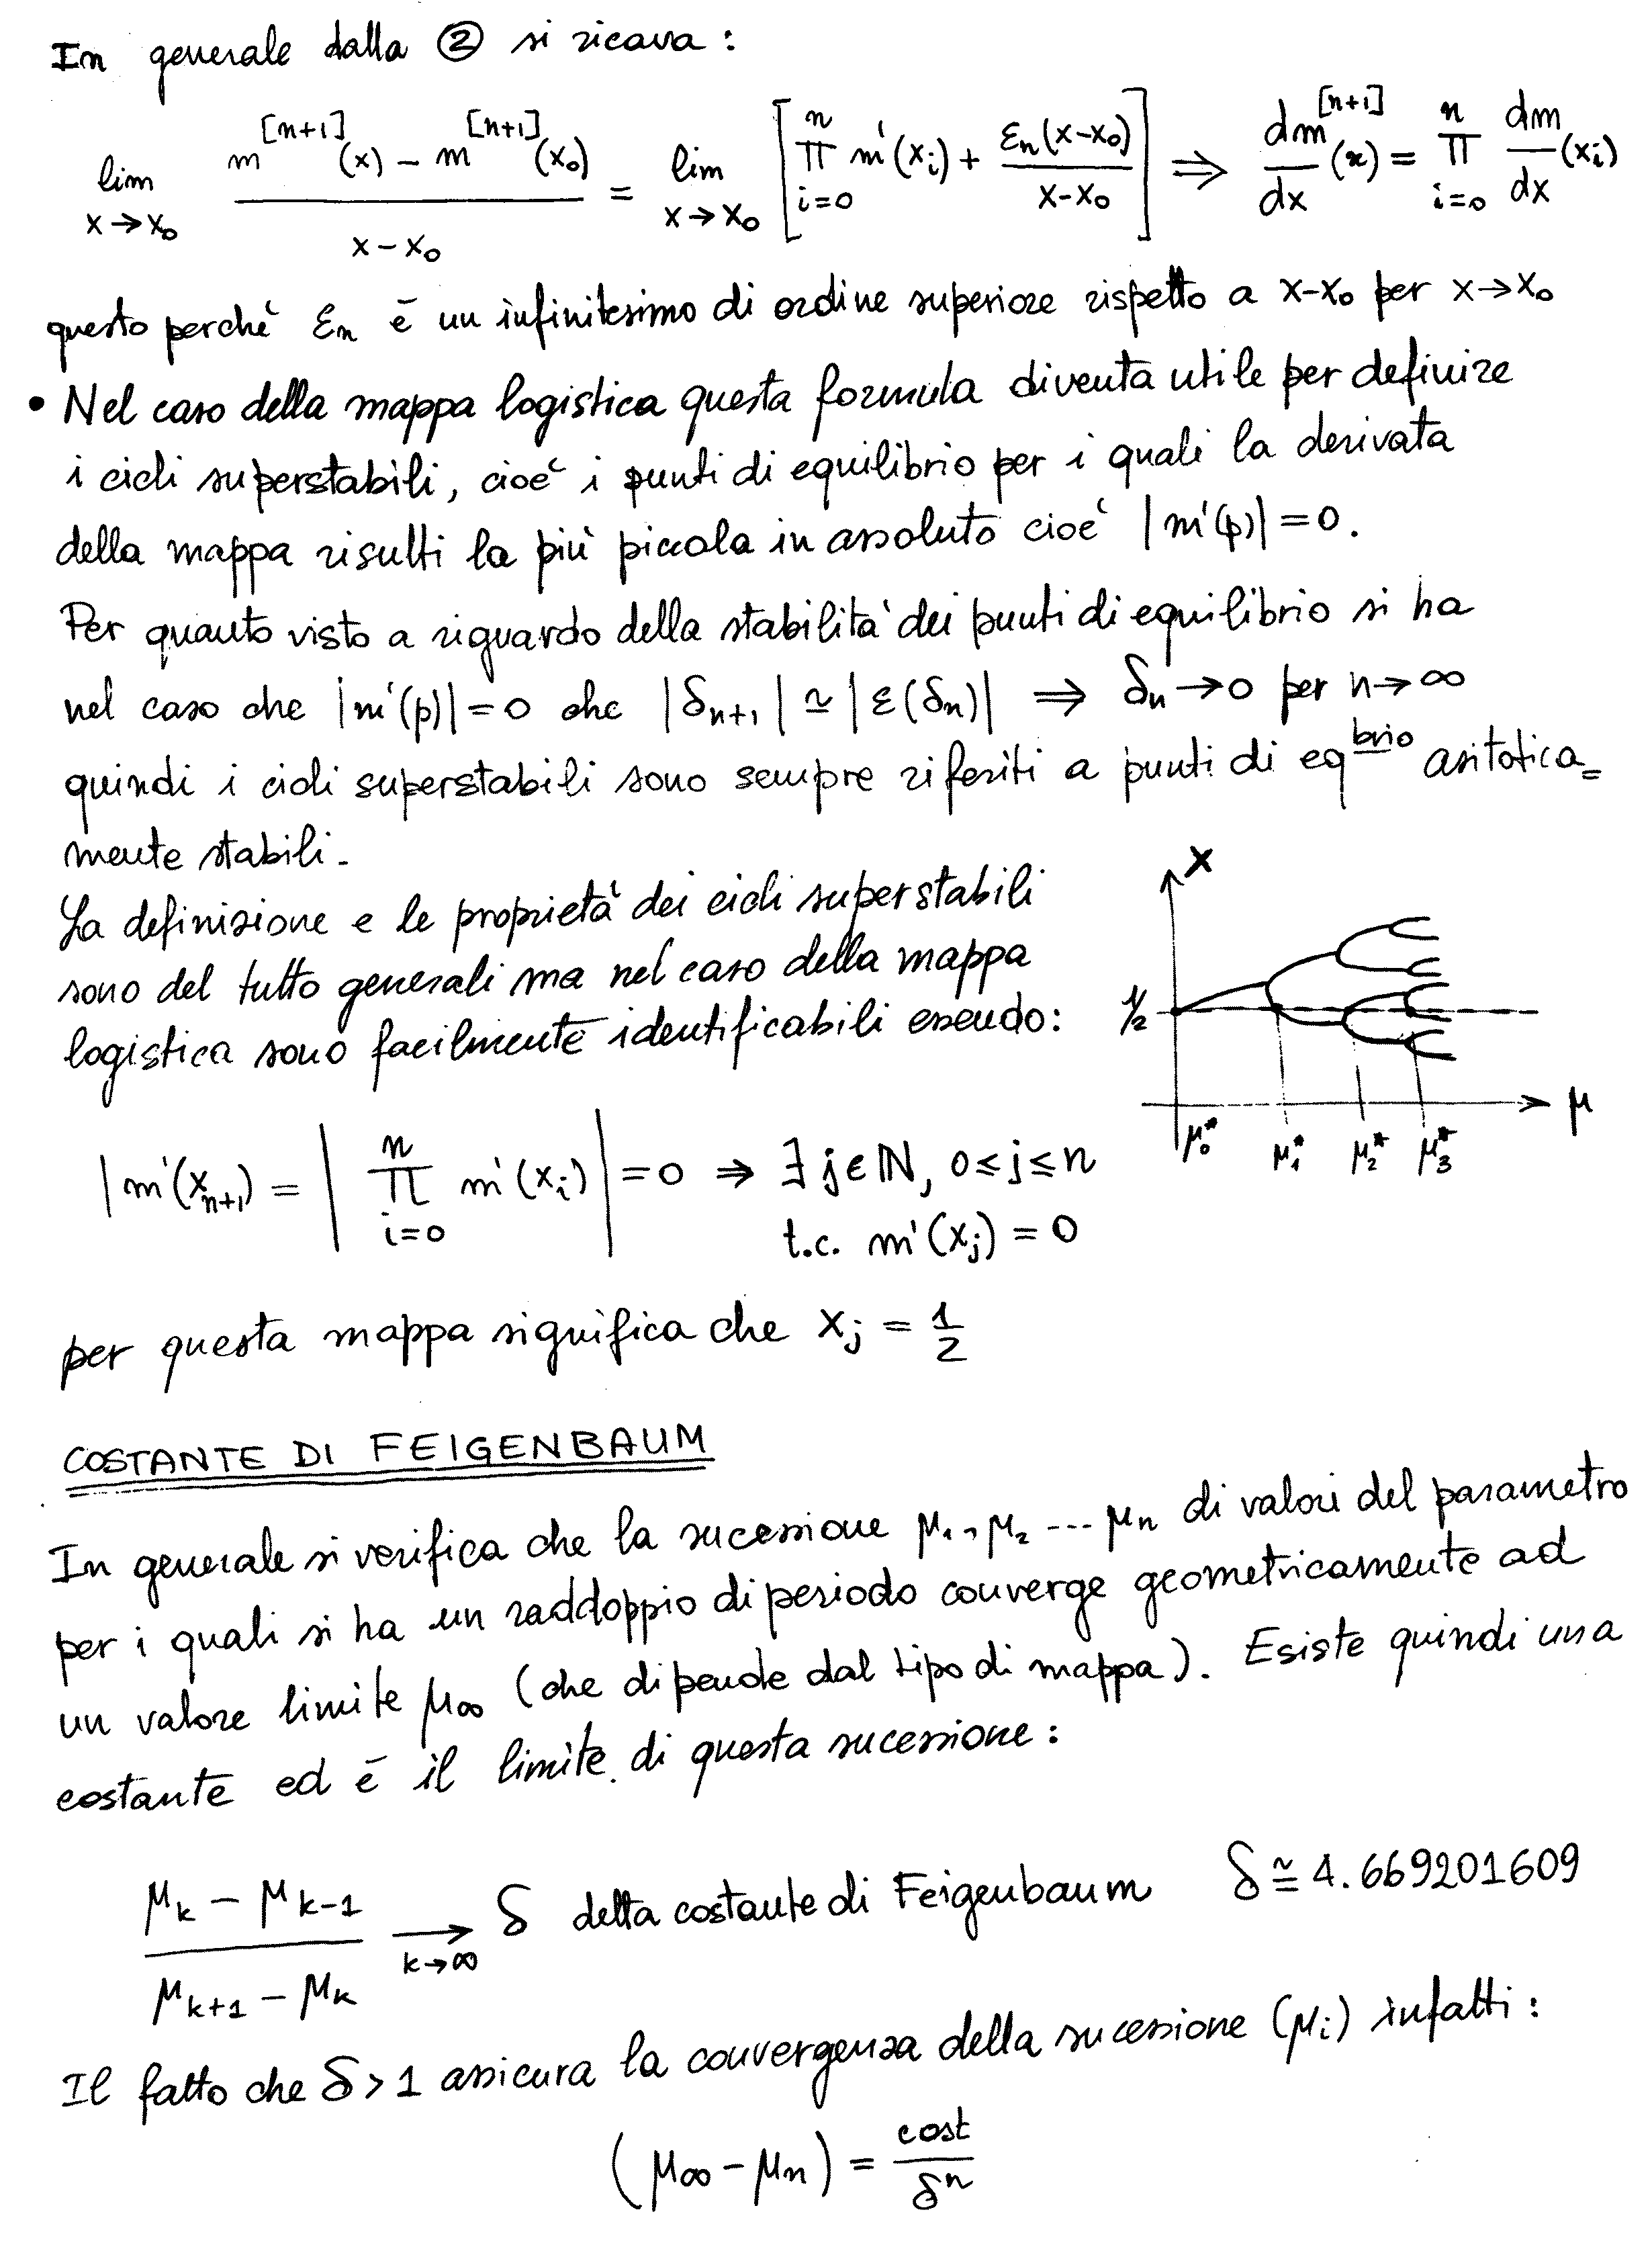 In generale dalla ② si ricava:
lim x→x₀ (m^[n+1](x) − m^[n+1](x₀)) / (x−x₀) = lim x→x₀ [ ∏_{i=0}^{n} m'(xᵢ) + εₙ(x−x₀)/(x−x₀) ] ⇒ dm^[n+1]/dx (x) = ∏_{i=0}^{n} dm/dx (xᵢ)
questo perchè εₙ è un infinitesimo di ordine superiore rispetto a x−x₀ per x→x₀
• Nel caso della mappa logistica questa formula diventa utile per definire
i cicli superstabili, cioè i punti di equilibrio per i quali la derivata
della mappa risulti la più piccola in assoluto cioè |m'(p)|=0.
Per quanto visto a riguardo della stabilità dei punti di equilibrio si ha
nel caso che |m'(p)|=0 che |δₙ₊₁| ≃ |ε(δₙ)| ⇒ δₙ→0 per n→∞
quindi i cicli superstabili sono sempre riferiti a punti di eq^brio asitotica=
mente stabili.
La definizione e le proprietà dei cicli superstabili
sono del tutto generali ma nel caso della mappa
logistica sono facilmente identificabili essendo:
x
1/2
μ
μ₀* μ₁* μ₂* μ₃*
|m'(xₙ₊₁) = | ∏_{i=0}^{n} m'(xᵢ) | = 0 ⇒ ∃ j∈ℕ, 0≤j≤n
t.c. m'(xⱼ) = 0
per questa mappa significa che xⱼ = 1/2
COSTANTE DI FEIGENBAUM
In generale si verifica che la sucessione μ₁, μ₂ --- μₙ di valori del parametro
per i quali si ha un raddoppio di periodo converge geometricamente ad
un valore limite μ∞ (che dipende dal tipo di mappa). Esiste quindi una
costante ed è il limite di questa sucessione:
(μₖ − μₖ₋₁) / (μₖ₊₁ − μₖ) →_{k→∞} δ detta costante di Feigenbaum δ ≅ 4.669201609
Il fatto che δ>1 assicura la convergenza della sucessione (μᵢ) infatti:
(μ∞ − μₙ) = cost / δⁿ